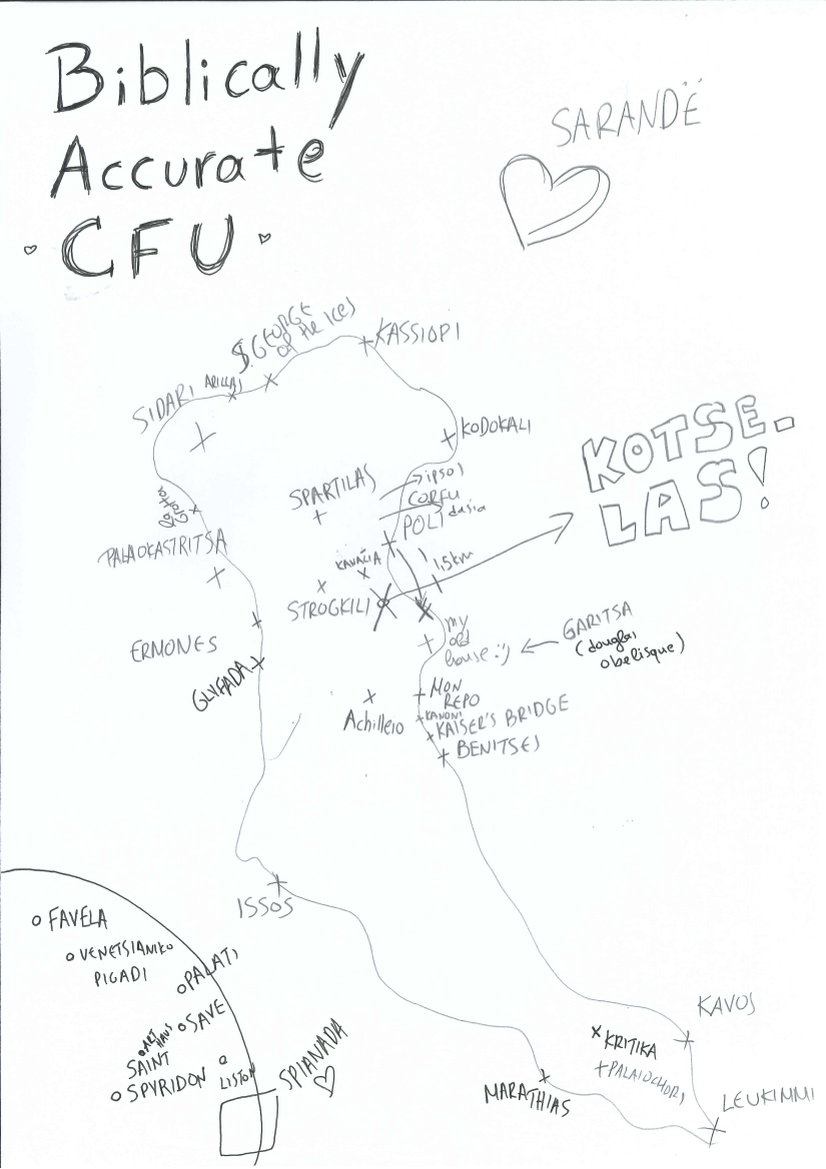 Biblically
Accurate
CFU
SARANDË
$GEORGE
OF the ICES
KASSIOPI
SIDARI
ARILLAS
KODOKALI
SPARTILAS
ipsos
CORFU
POLI
dasia
KOTSE-
LAS!
PALAOKASTRITSA
KAVALIA
1,5km
STROGKILI
my
old
house :')
GARITSA
(douglas
obelisque)
ERMONES
GLYFADA
MON
REPO
Achilleio
KANONI
KAISER'S BRIDGE
BENITSES
ISSOS
FAVELA
VENETSIANIKO
PIGADI
PALATI
SAVE
ART
HAUS
SAINT
SPYRIDON
LISTON
SPIANADA
KAVOS
KRITIKA
PALAIOCHORI
MARATHIAS
LEUKIMMI